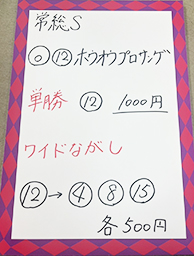 常総S
◎⑫ホウオウプロサンゲ
単勝 ⑫ 1000円
ワイドながし
⑫→④⑧⑮
各500円